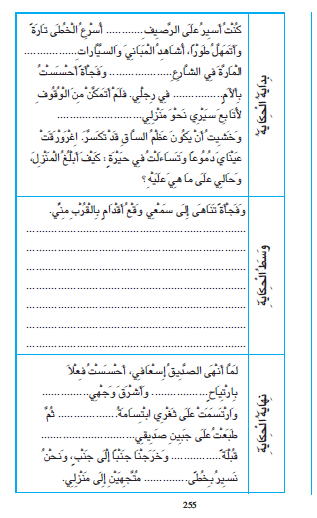 بِدَايَةُ الْحِكَايَةِ
كُنْتُ أَسِيرُ عَلَى الرَّصِيفِ............ أُسْرِعُ الْخُطَى تَارَةً
وَأَتَمَهَّلُ طَوْرًا، أُشَاهِدُ الْمَبَانِيَ وَالسَّيَّارَاتِ................
الْمَارَّةَ فِي الشَّارِعِ.................... وَفَجْأَةً أَحْسَسْتُ
بِآلَامٍ................ فِي رِجْلِي. فَلَمْ أَتَمَكَّنْ مِنَ الْوُقُوفِ
لِأُتَابِعَ سَيْرِي نَحْوَ مَنْزِلِي...........................
وَخَشِيتُ أَنْ يَكُونَ عَظْمُ السَّاقِ قَدْ تَكَسَّرَ. اغْرَوْرَقَتْ
عَيْنَايَ دُمُوعًا وَتَسَاءَلْتُ فِي حَيْرَةٍ : كَيْفَ أَبْلُغُ الْمَنْزِلَ،
وَحَالِي عَلَى مَا هِيَ عَلَيْهِ؟
وَسَطُ الْحِكَايَةِ
وَفَجْأَةً تَنَاهَى إِلَى سَمْعِي وَقْعُ أَقْدَامٍ بِالْقُرْبِ مِنِّي.
نِهَايَةُ الْحِكَايَةِ
لَمَّا أَنْهَى الصَّدِيقُ إِسْعَافِي، أَحْسَسْتُ فِعْلًا
بِارْتِيَاحٍ.................. وَأَشْرَقَ وَجْهِي...............
وَارْتَسَمَتْ عَلَى ثَغْرِي ابْتِسَامَةٌ................... ثُمَّ
طَبَعْتُ عَلَى جَبِينِ صَدِيقِي............................
قُبْلَةً................ وَخَرَجْنَا جَنْبًا إِلَى جَنْبٍ، وَنَحْنُ
نَسِيرُ بِخُطًى.............. مُتَّجِهَيْنِ إِلَى مَنْزِلِي.
255